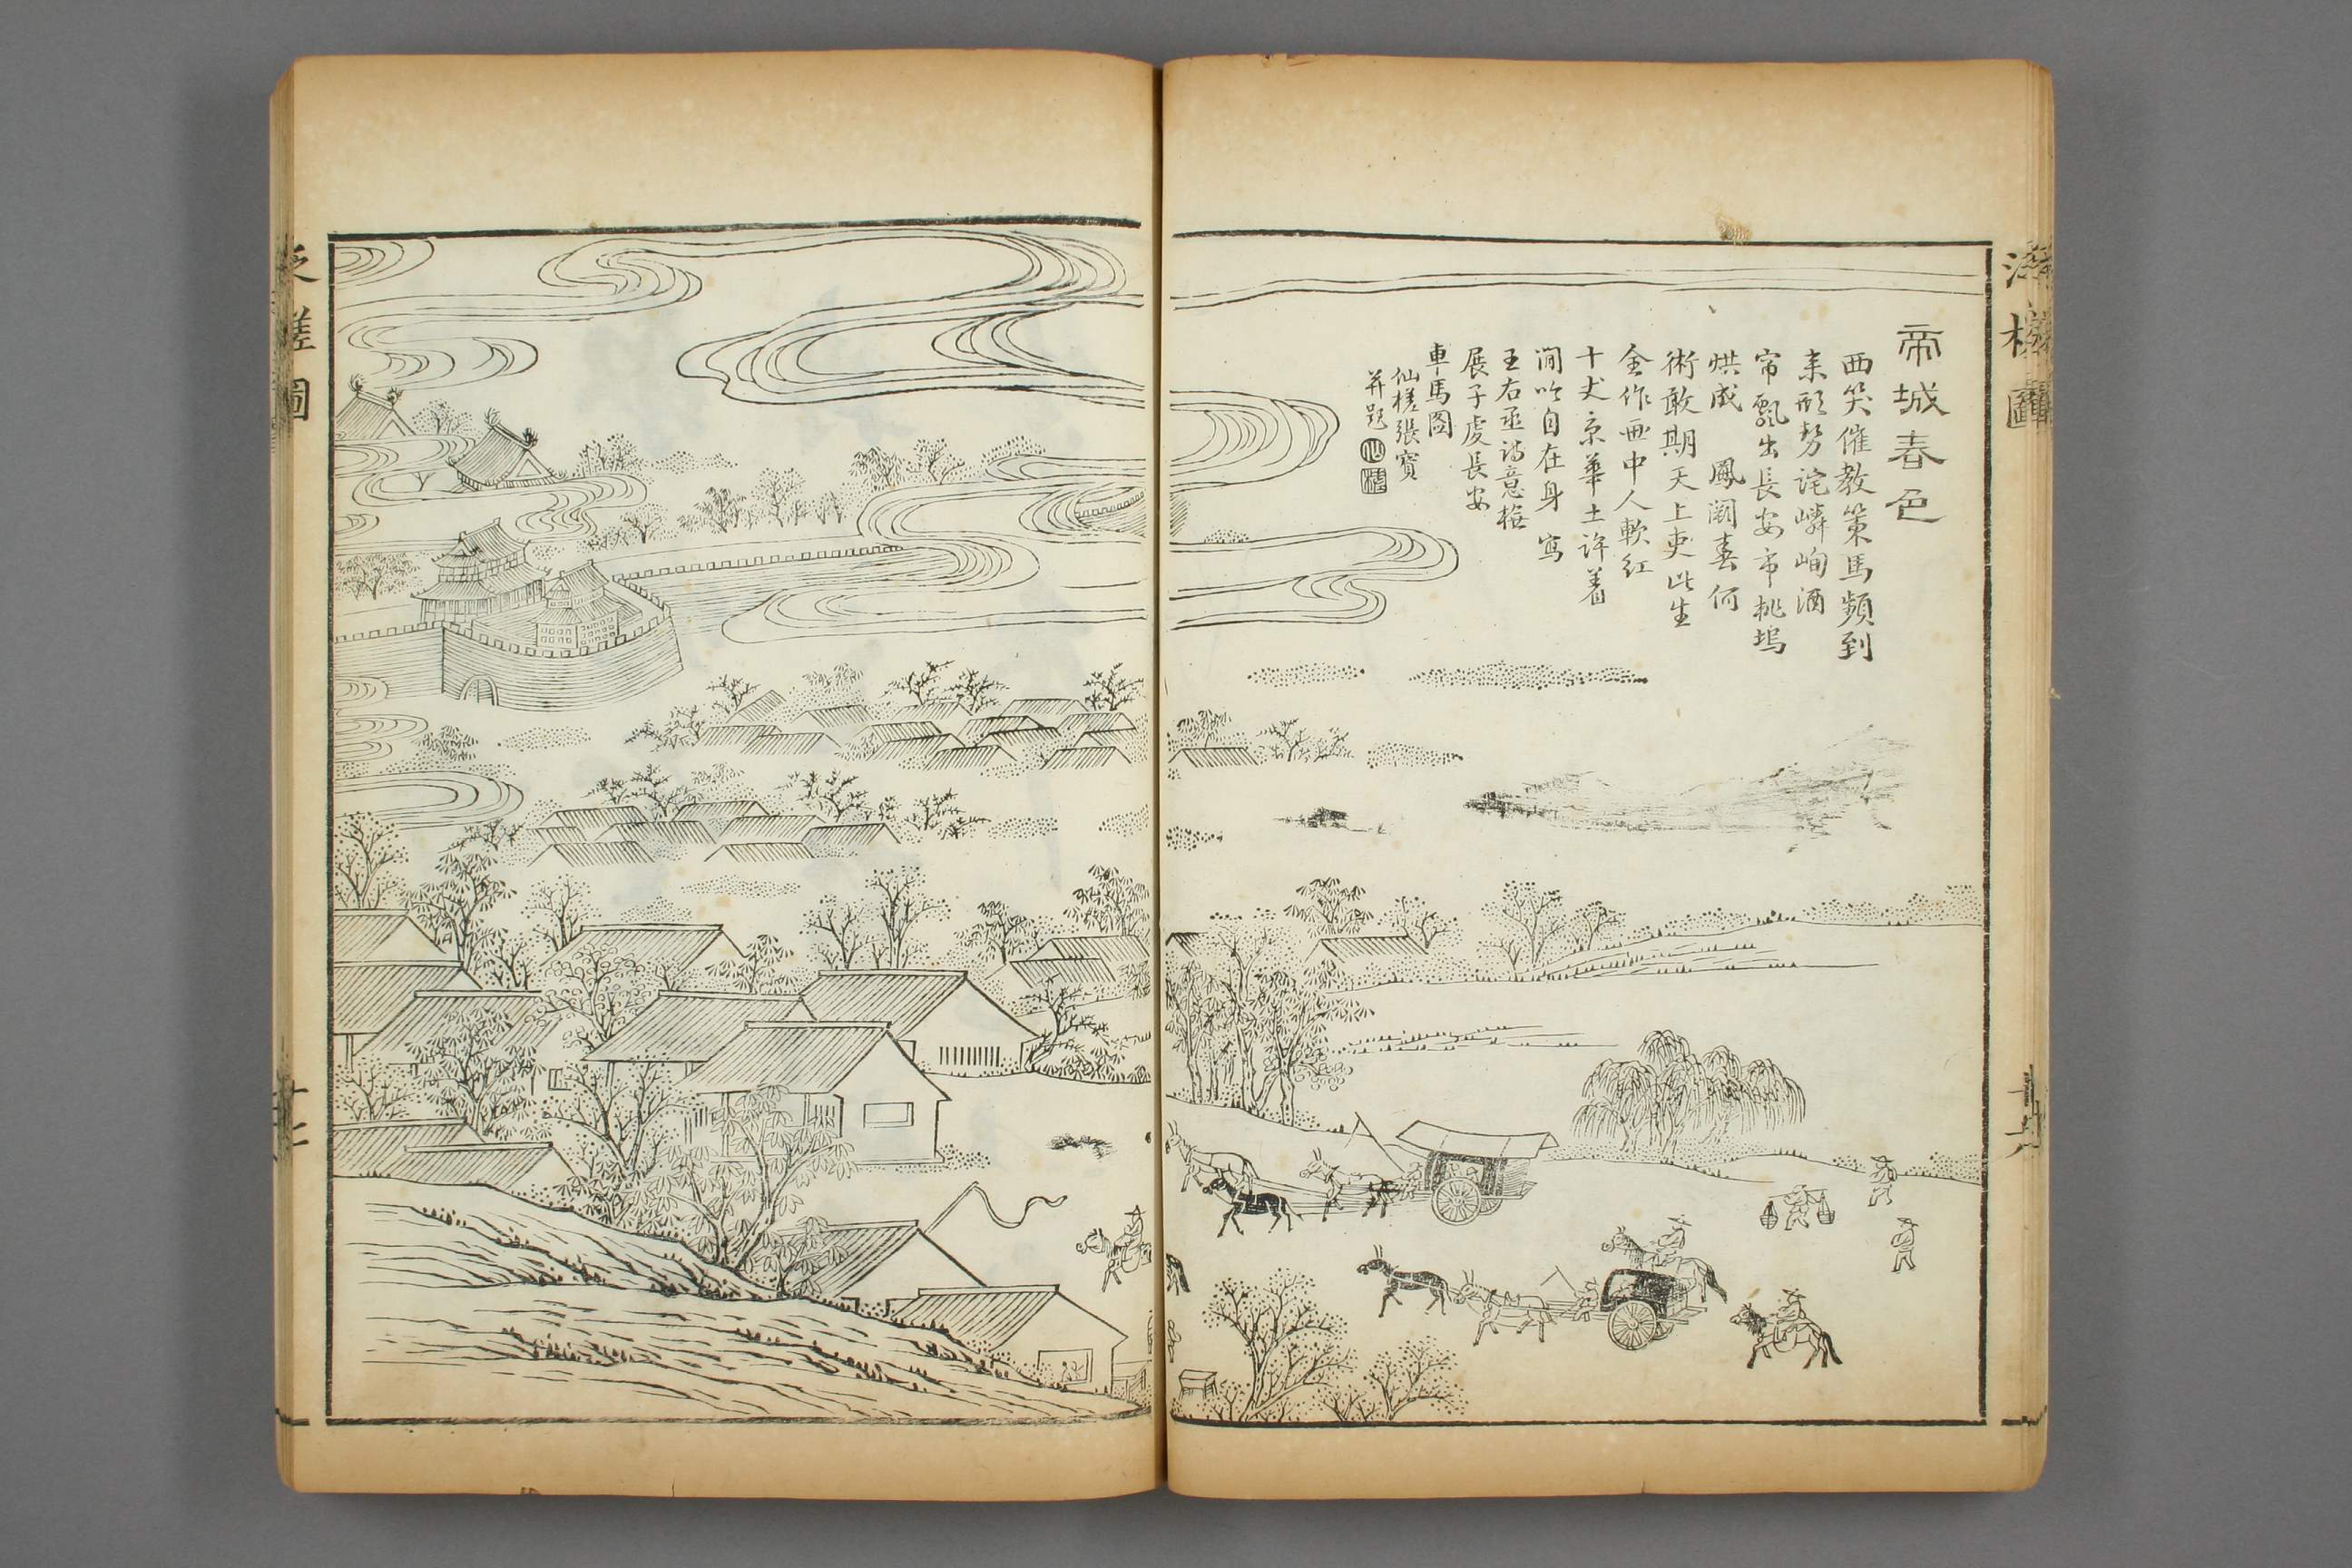 帝城春色
西笑催教策馬頻到
来形勢詫嶙峋酒
帘飄出長安市桃塢
烘成 鳳闕春何
術敢期天上吏此生
全作画中人軟紅
十丈京華土許着
閒吟自在身 寫
王右丞詩意橅
展子虔長安
車馬図
仙槎張寳
并题
仙槎
泛槎圖